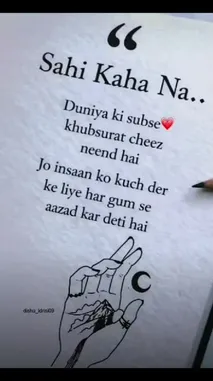 “
Sahi Kaha Na..
Duniya ki subse❤
khubsurat cheez
neend hai
Jo insaan ko kuch der
ke liye har gum se
aazad kar deti hai